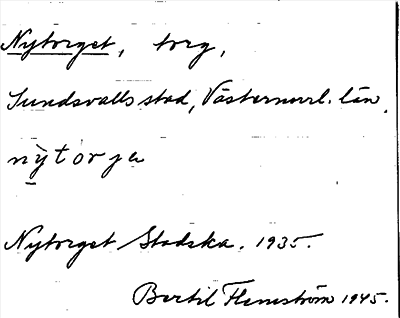 Nytorget, torg,
Sundsvalls stad, Västernorrl. län.
nỳtorja
Nytorget Stadska. 1935.
Bertil Flemström 1945.